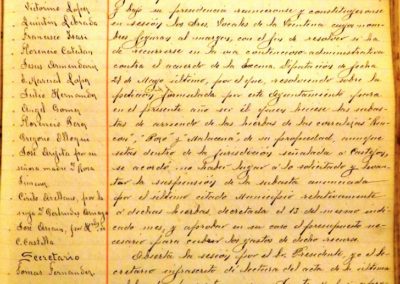 Victorino Lopez
Quintin Labrada
Francisco Irasi
Florencio Catalan
Jesus Armendariz
E. Manuel Lopez
Julio Hernandez
Angel Gomez
Florencio Rosa
Gregorio Ulloqui
José Argüeta por su
señora madre D.ª Flora
Cirilo Arellano, por la
C. Castella
Secretario
Tomas Fernandez
y bajo su presidencia reunieronse y constituyeronse
en sesión los Sres. Vocales de la Veintena cuyos nom-
bres figuran al margen, con el fin de resolver si ha
de recurrirse en la via contencioso administrativa
contra el acuerdo de la Excma. Diputación de fecha
21 de Mayo último, por el que, resolviendo sobre la
petición formulada por este Ayuntamiento para
en el presente año ser él quien hiciese las subas-
tas de arriendo de las hierbas de las corralizas "Rin-
con", "Pozo" y "Matacuna" de su propiedad, aunque
sitas dentro de la jurisdicción señalada a Castejon,
se acordó no haber lugar a lo solicitado y levan-
tar la suspensión de la subasta anunciada
por el último citado Municipio relativamente
a dichas hierbas decretada el 13 del mismo indi-
cado mes, y aprobar en su caso el presupuesto ne-
cesario para cubrir los gastos de dicho recurso.
Abierta la sesión por el Sr. Presidente, yo el se-
cretario infrascrito di lectura del acta de la última